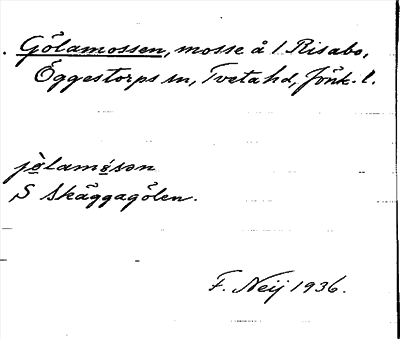 Gölamossen, mosse å 1 Risabo,
Öggestorps sn, Tveta hd, Jönk. l.
jö̀lamósən
S Skäggagölen.
F. Neij 1936.